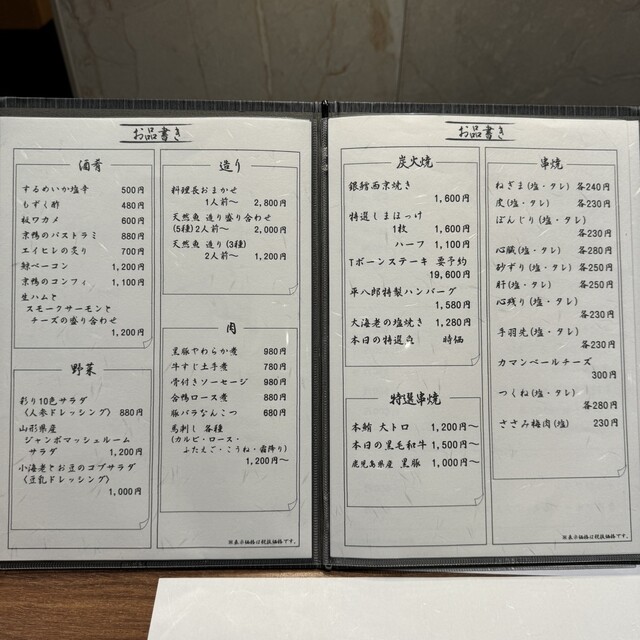 お品書き
酒肴
するめいか塩辛 500円
もずく酢 480円
板ワカメ 600円
京鴨のパストラミ 880円
エイヒレの炙り 700円
鯨ベーコン 1,200円
京鴨のコンフィ 1,100円
生ハムと
スモークサーモンと
チーズの盛り合わせ
1,200円
野菜
彩り10色サラダ
(人参ドレッシング) 880円
山形県産
ジャンボマッシュルーム
サラダ 1,200円
小海老とお豆のコブサラダ
(豆乳ドレッシング)
1,000円
造り
料理長おまかせ
1人前〜 2,800円
天然魚 造り盛り合わせ
(5種)2人前〜 2,000円
天然魚 造り(3種)
2人前〜 1,200円
肉
黒豚やわらか煮 980円
牛すじ土手煮 780円
骨付きソーセージ 980円
合鴨ロース煮 980円
豚バラなんこつ 680円
馬刺し 各種
(カルビ・ロース・
ふたえご・こうね・霜降り)
1,200円〜
※表示価格は税抜価格です。
お品書き
炭火焼
銀鱈西京焼き
1,600円
特選しまほっけ
1枚 1,600円
ハーフ 1,100円
Tボーンステーキ 要予約
19,600円
平八郎特製ハンバーグ
1,580円
大海老の塩焼き 1,280円
本日の特選魚 時価
特選串焼
本鮪 大トロ 1,200円〜
本日の黒毛和牛 1,500円〜
鹿児島県産 黒豚 1,000円〜
串焼
ねぎま(塩・タレ) 各240円
皮(塩・タレ) 各230円
ぼんじり(塩・タレ)
各230円
心臓(塩・タレ) 各280円
砂ずり(塩・タレ) 各250円
肝(塩・タレ) 各250円
心残り(塩・タレ)
各230円
手羽先(塩・タレ)
各230円
カマンベールチーズ
300円
つくね(塩・タレ)
各280円
ささみ梅肉(塩) 230円
※表示価格は税抜価格です。